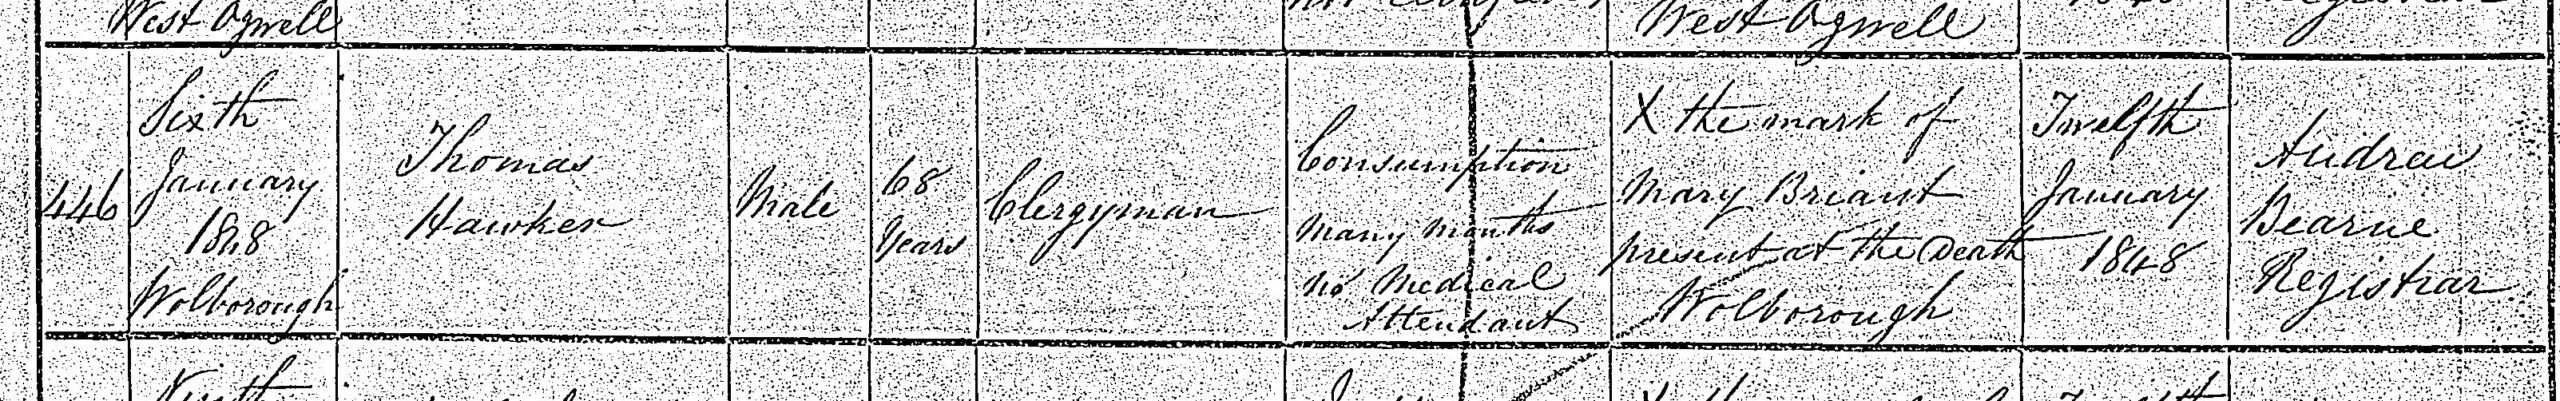 West Ogwell
West Ogwell
446
Sixth
January
1848
Wolborough
Thomas
Hawker
Male
68
Years
Clergyman
Consumption
Many Months
no Medical
Attendant
X the mark of
Mary Briant
present at the Death
Wolborough
Twelfth
January
1848
Andrew
Bearne
Registrar